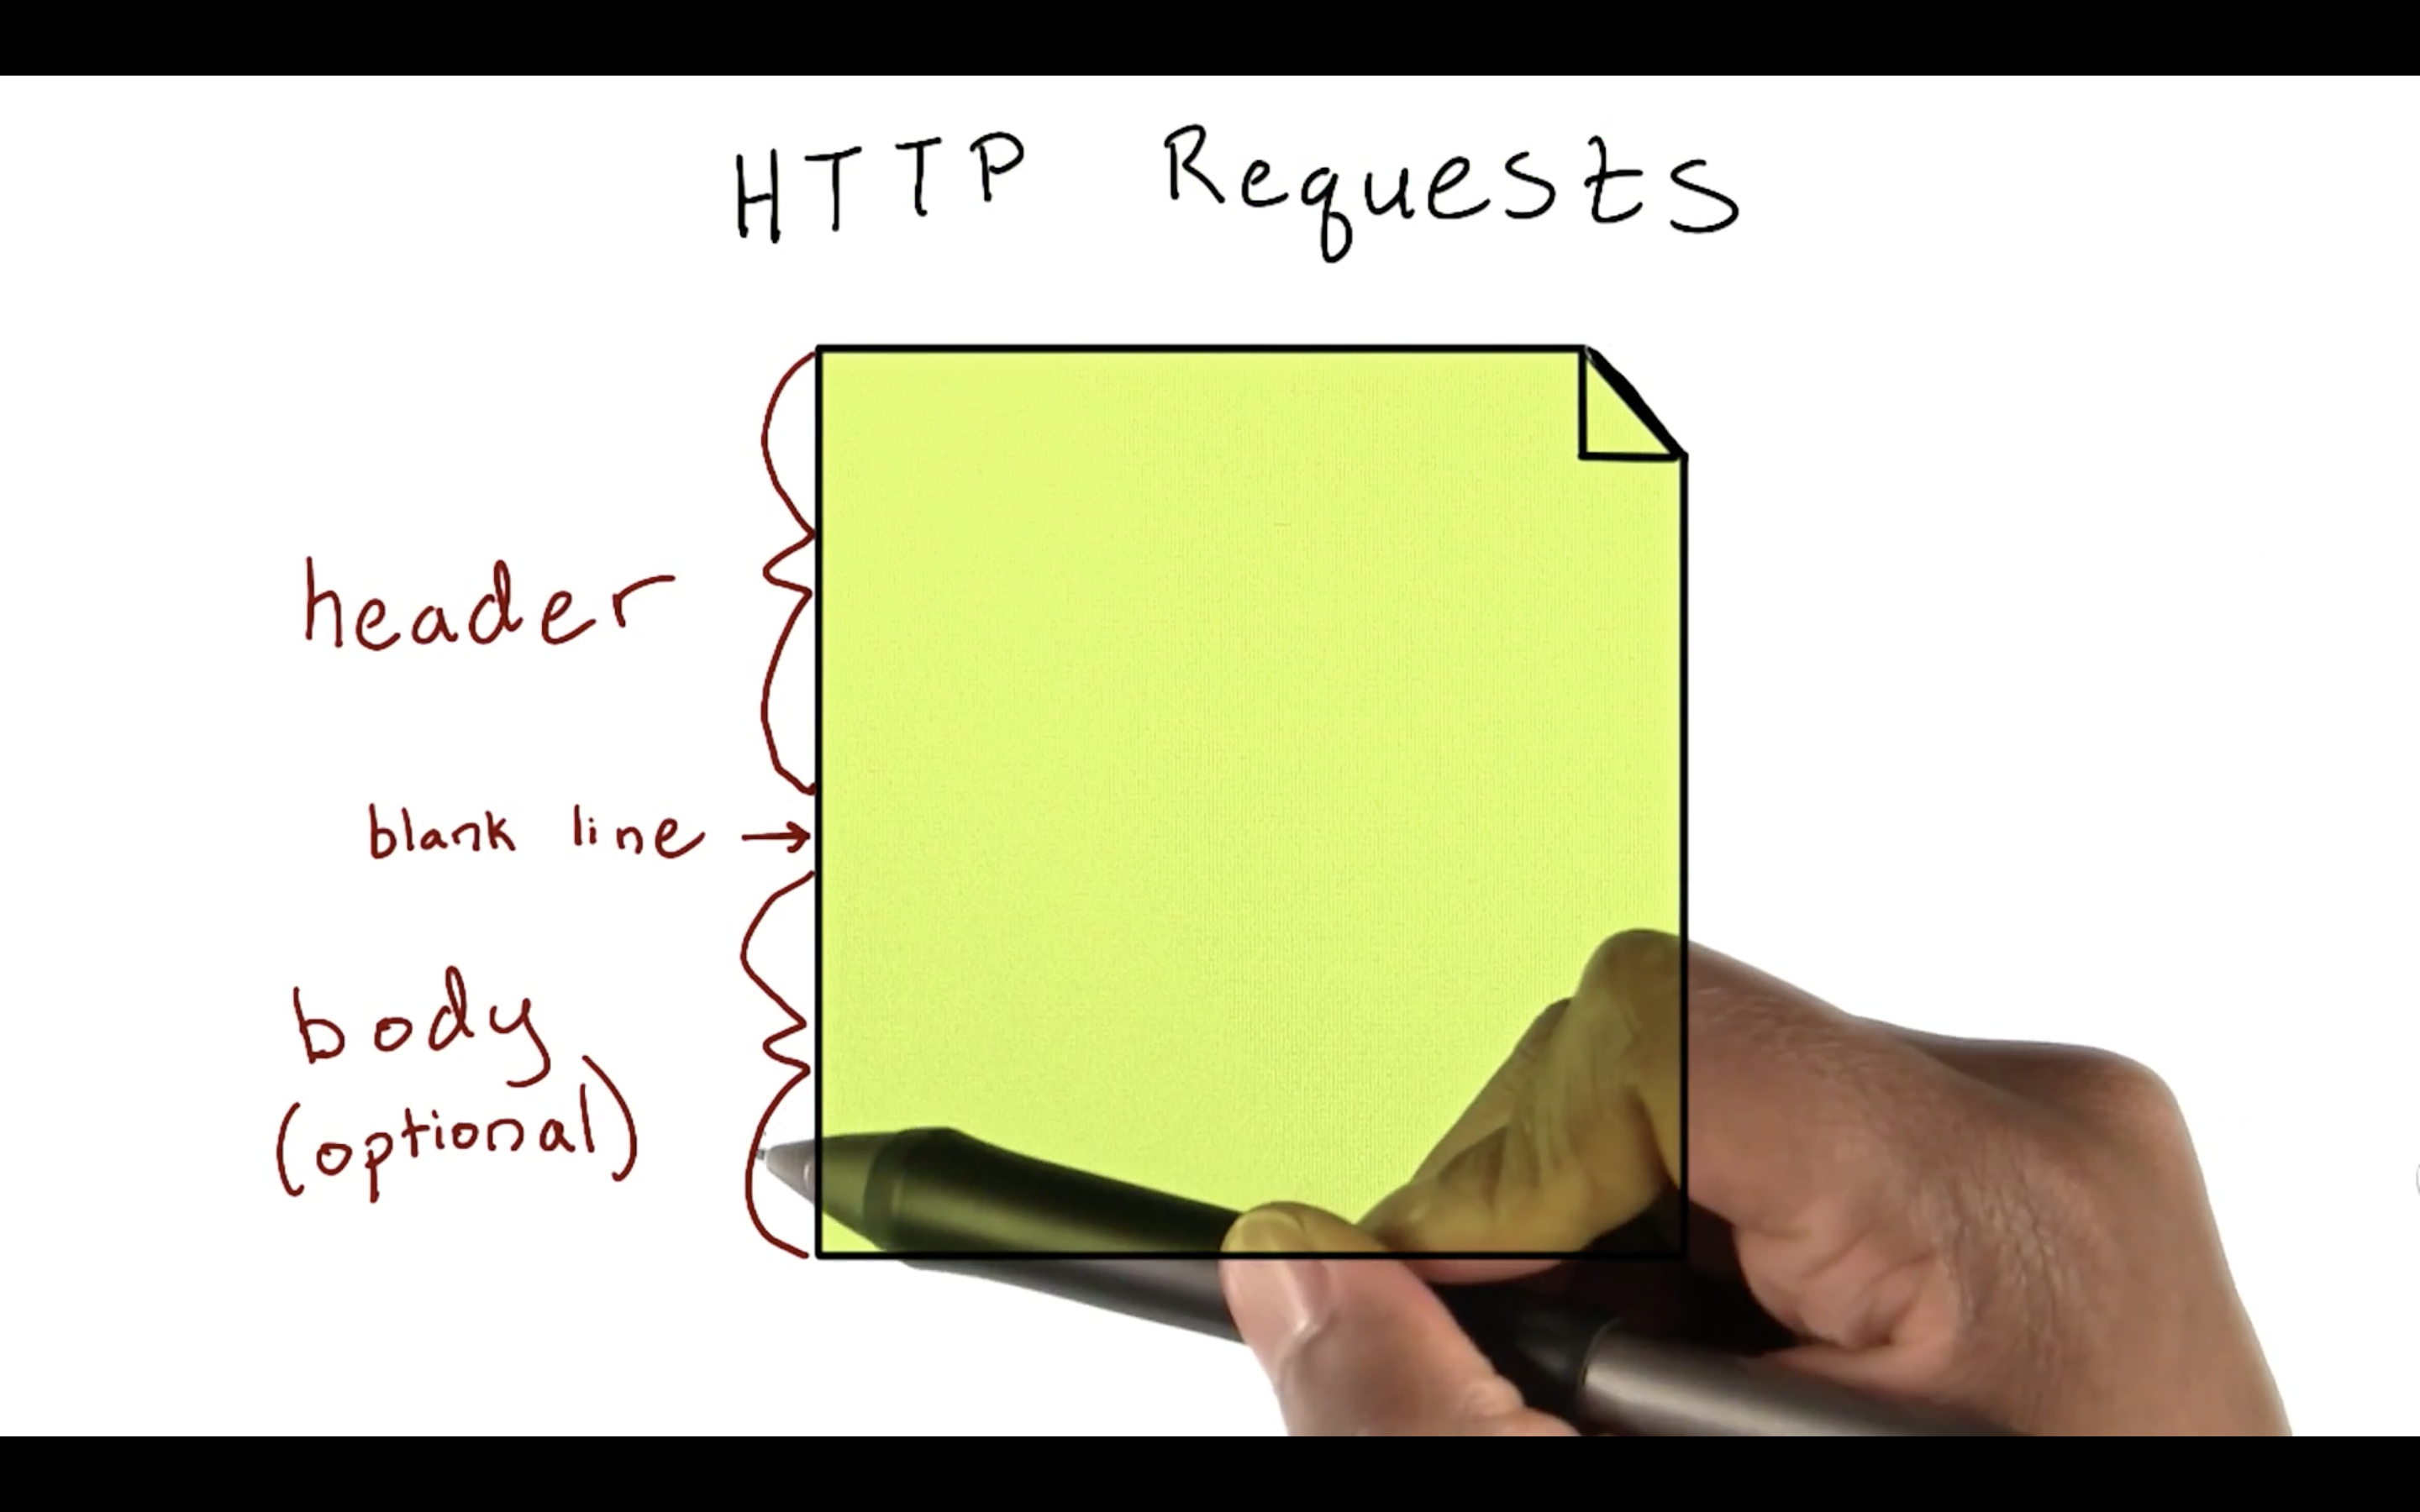 HTTP Requests
header
blank line →
body
(optional)